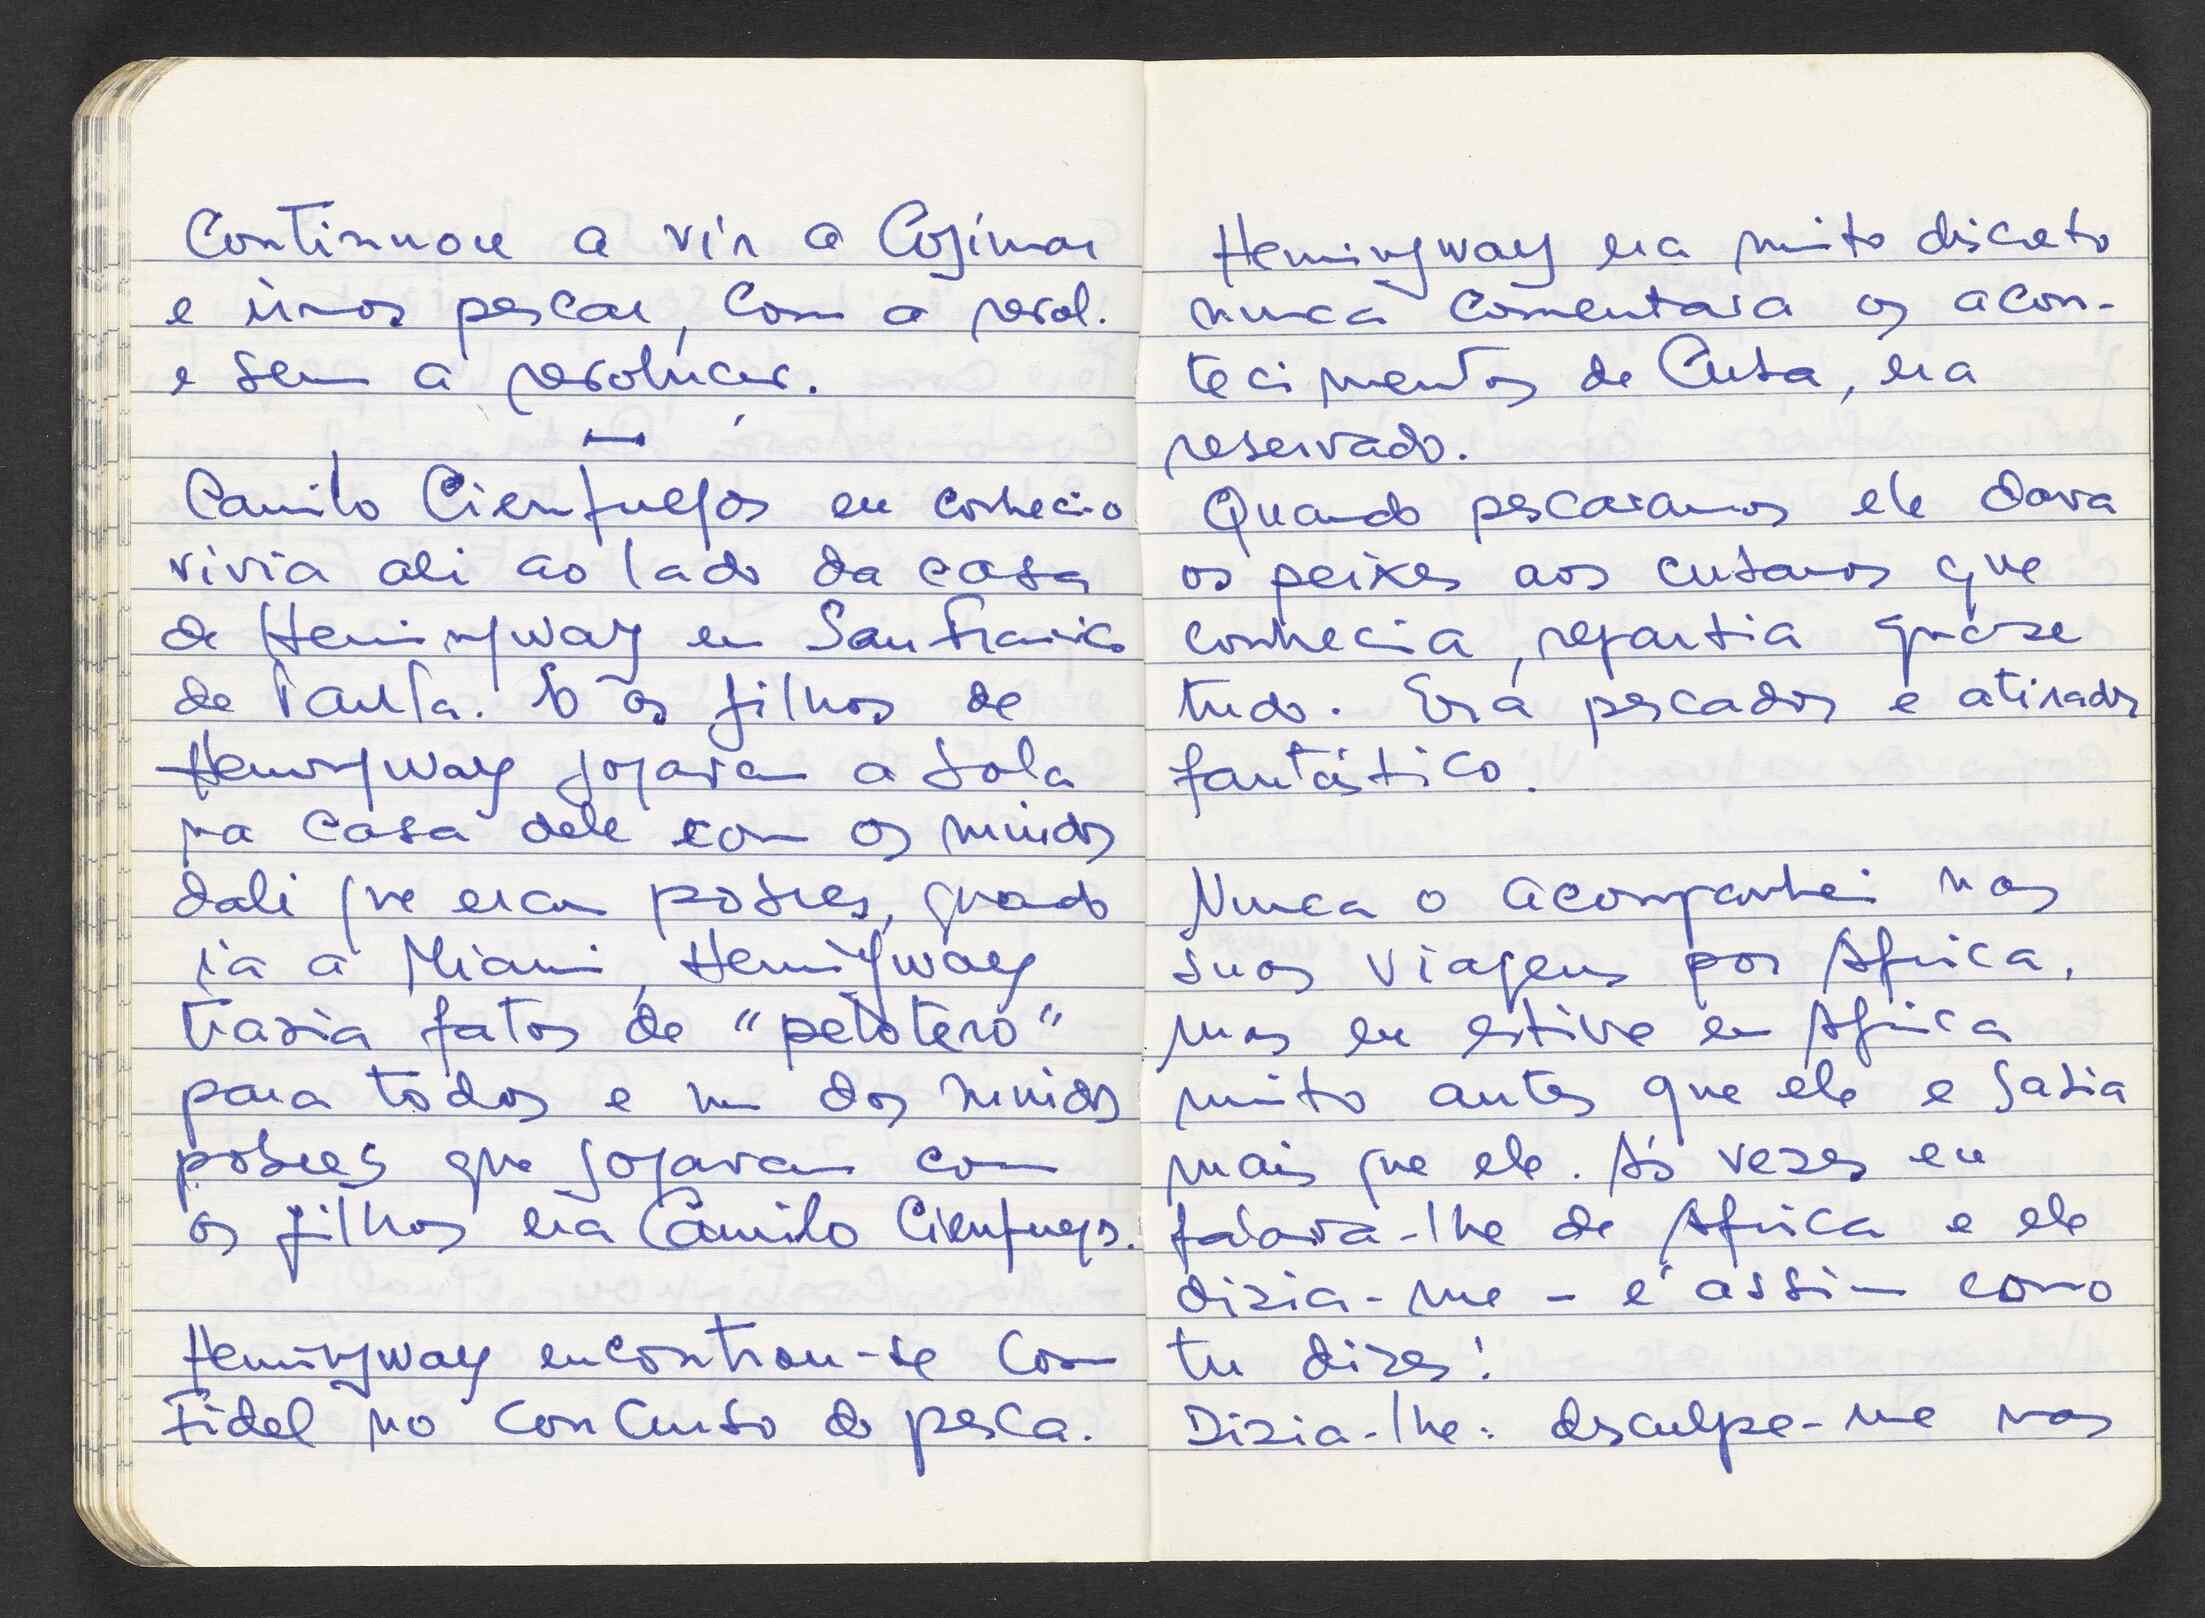 Continuou a vir a Cojimar
e íamos pescar, com a revol.
e sem a revolução.
Camilo Cienfuegos eu conheci-o
vivia ali ao lado da casa
de Hemingway em San Francisco
de Paula. E os filhos de
Hemingway jogavam a bola
na casa dele com os miúdos
dali que eram pobres, quando
ia a Miami, Hemingway
trazia fatos de "pelotero"
para todos e um dos miúdos
pobres que jogavam com
os filhos era Camilo Cienfuegos.
Hemingway encontrou-se com
Fidel no concurso de pesca.
Hemingway era muito discreto
nunca comentava os acon-
tecimentos de Cuba, era
reservado.
Quando pescavamos ele dava
os peixes aos cubanos que
conhecia, repartia quase
tudo. Era pescador e atirador
fantástico.
Nunca o acompanhei nas
suas viagens por Africa,
mas eu estive em Africa
muito antes que ele e sabia
mais que ele. Ás vezes eu
falava-lhe de Africa e ele
dizia-me - é assim como
tu dizes!
Dizia-lhe: desculpe-me mas